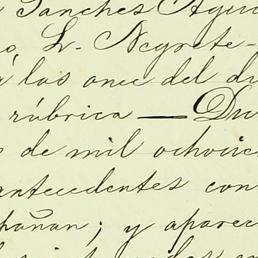 Sanches Ayu
o, L. Negrete-
a las once del d
rúbrica — Du
s de mil ochoci
antecedentes con
pañan; y aparec